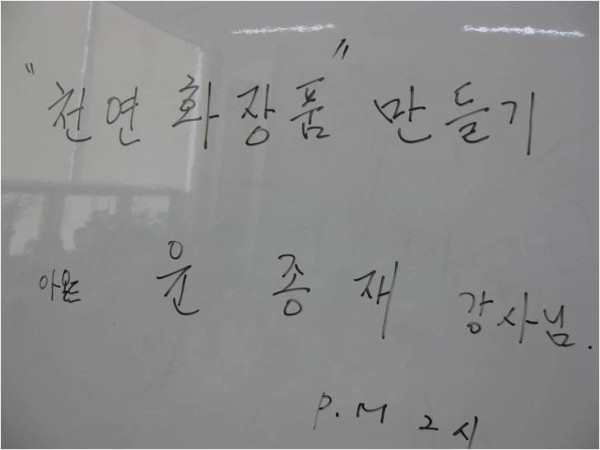 "천연화장품" 만들기
윤종재 강사님.
P.M 2시